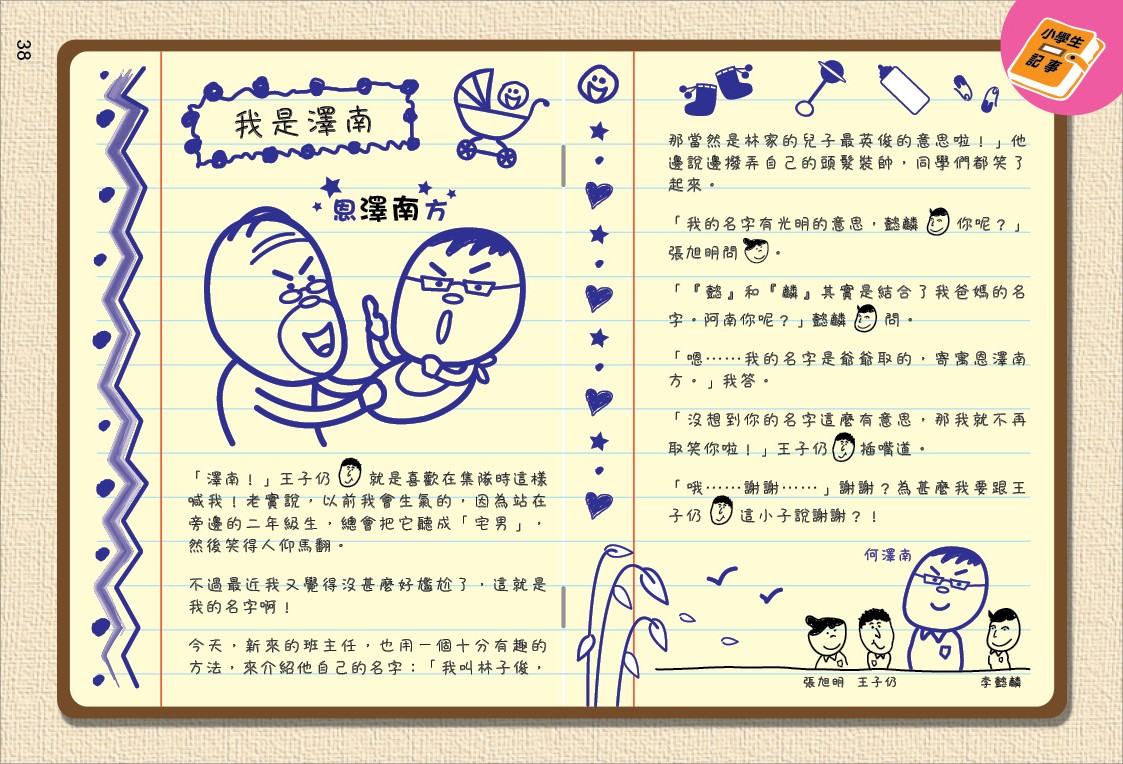 38
小學生
記事
我是澤南
恩澤南方
「澤南！」王子仍 就是喜歡在集隊時這樣
喊我！老實說，以前我會生氣的，因為站在
旁邊的二年級生，總會把它聽成「宅男」，
然後笑得人仰馬翻。
不過最近我又覺得沒甚麼好尷尬了，這就是
我的名字啊！
今天，新來的班主任，也用一個十分有趣的
方法，來介紹他自己的名字：「我叫林子俊，
那當然是林家的兒子最英俊的意思啦！」他
邊說邊撥弄自己的頭髮裝帥，同學們都笑了
起來。
「我的名字有光明的意思，懿麟 你呢？」
張旭明問 。
「『懿』和『麟』其實是結合了我爸媽的名
字。阿南你呢？」懿麟 問。
「嗯……我的名字是爺爺取的，寄寓恩澤南
方。」我答。
「沒想到你的名字這麼有意思，那我就不再
取笑你啦！」王子仍 插嘴道。
「哦……謝謝……」謝謝？為甚麼我要跟王
子仍 這小子說謝謝？！
何澤南
張旭明 王子仍 李懿麟